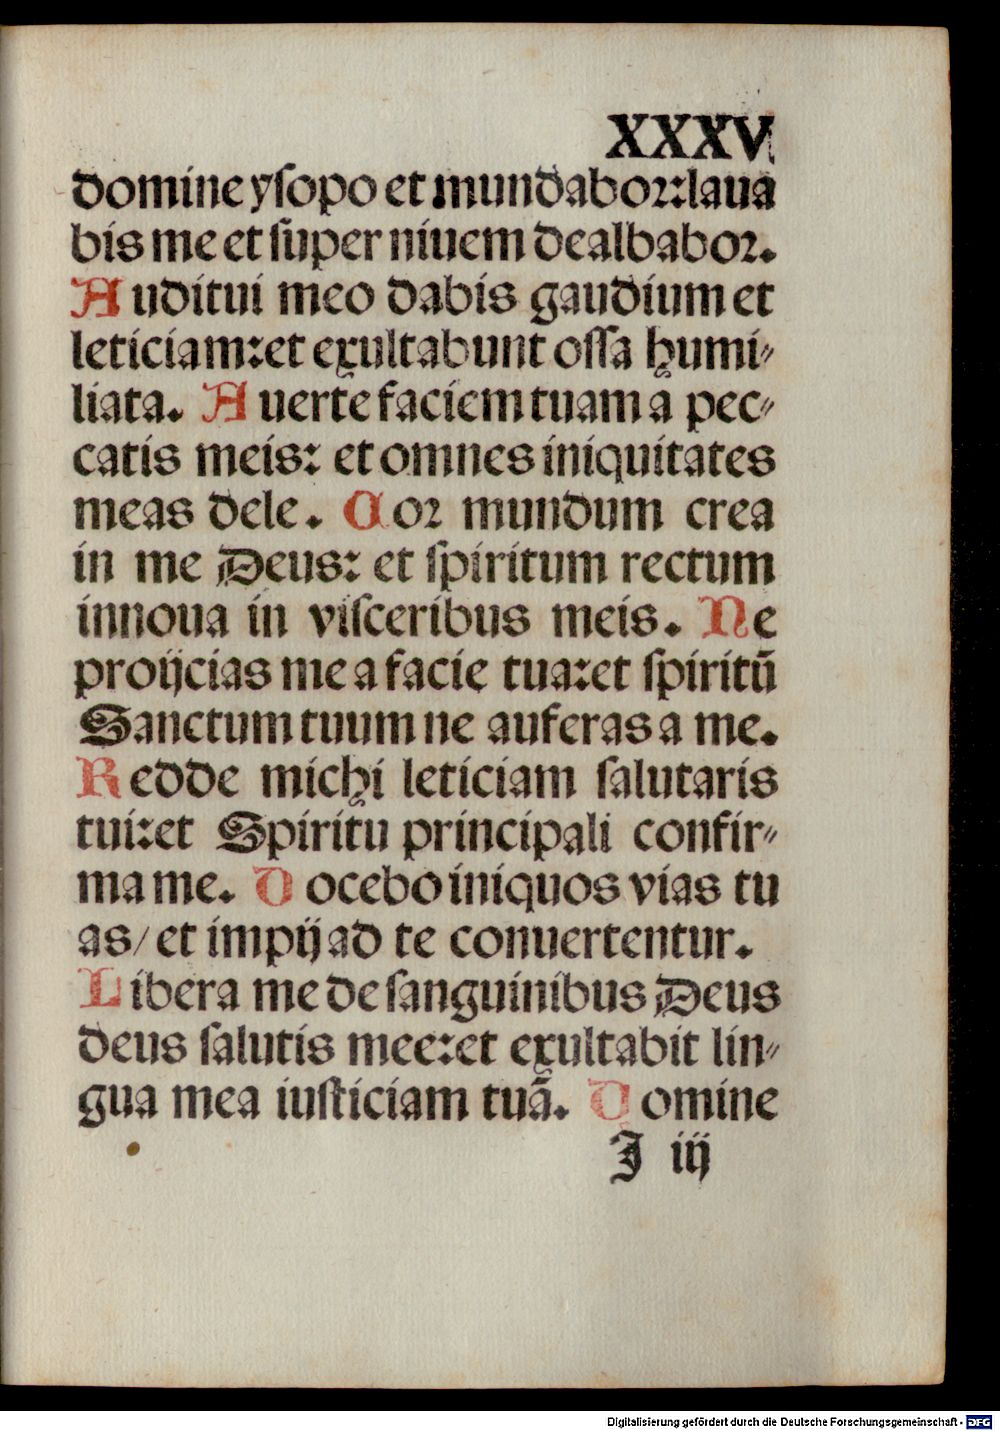 XXXV
domine ysopo et mundabor: laua
bis me et super niuem dealbabor.
Auditui meo dabis gaudium et
leticiam: et exultabunt ossa humi-
liata. Auerte faciem tuam a pec-
catis meis: et omnes iniquitates
meas dele. Cor mundum crea
in me Deus: et spiritum rectum
innoua in visceribus meis. Ne
proijcias me a facie tua: et spiritū
Sanctum tuum ne auferas a me.
Redde michi leticiam salutaris
tui: et Spiritu principali confir-
ma me. Docebo iniquos vias tu
as/ et impij ad te conuertentur.
Libera me de sanguinibus Deus
deus salutis mee: et exultabit lin-
gua mea iusticiam tuā. Domine
J iij
Digitalisierung gefördert durch die Deutsche Forschungsgemeinschaft - DFG